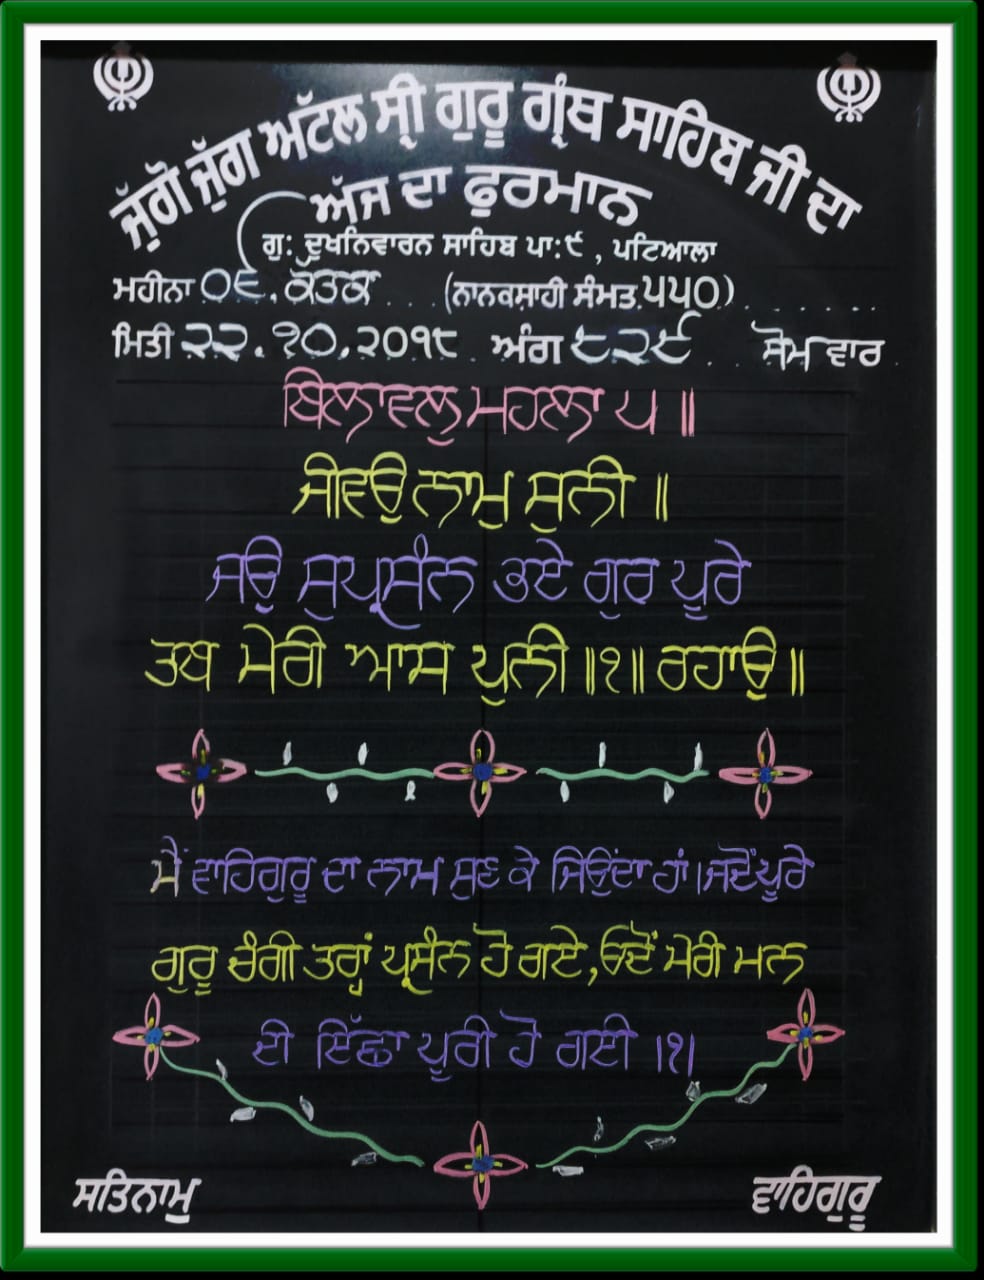 ਜੁੱਗੋ ਜੁੱਗ ਅਟੱਲ ਸ੍ਰੀ ਗੁਰੂ ਗ੍ਰੰਥ ਸਾਹਿਬ ਜੀ ਦਾ
ਅੱਜ ਦਾ ਫੁਰਮਾਨ
ਗੁ: ਦੁਖਨਿਵਾਰਨ ਸਾਹਿਬ ਪਾ:੯, ਪਟਿਆਲਾ
ਮਹੀਨਾ ੦੯. ਕੱਤਕ (ਨਾਨਕਸ਼ਾਹੀ ਸੰਮਤ ੫੫੦)
ਮਿਤੀ ੨੨.੧੦.੨੦੧੮ ਅੰਗ ੮੨੯ ਸੋਮ ਵਾਰ
ਬਿਲਾਵਲੁ ਮਹਲਾ ੫ ॥
ਜੀਵਉ ਨਾਮੁ ਸੁਨੀ ॥
ਜਉ ਸੁਪ੍ਰਸੰਨ ਭਏ ਗੁਰ ਪੂਰੇ
ਤਬ ਮੇਰੀ ਆਸ ਪੁਨੀ ॥੧॥ ਰਹਾਉ ॥
ਮੈਂ ਵਾਹਿਗੁਰੂ ਦਾ ਨਾਮ ਸੁਣ ਕੇ ਜਿਉਂਦਾ ਹਾਂ । ਜਦੋਂ ਪੂਰੇ
ਗੁਰੂ ਚੰਗੀ ਤਰ੍ਹਾਂ ਪ੍ਰਸੰਨ ਹੋ ਗਏ, ਓਦੋਂ ਮੇਰੀ ਮਨ
ਦੀ ਇੱਛਾ ਪੂਰੀ ਹੋ ਗਈ ।੧।
ਸਤਿਨਾਮੁ
ਵਾਹਿਗੁਰੂ